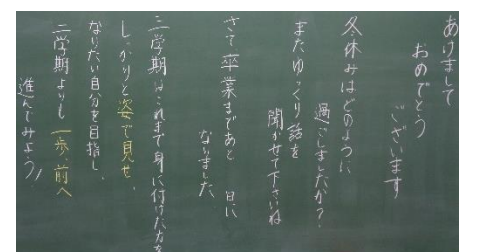 あけまして
おめでとう
ございます
冬休みはどのように
過ごしましたか？
またゆっくり話を
聞かせて下さいね
さて卒業まであと 日に
なりました
三学期はこれまで身に付けた力を
しっかりと姿で見せ、
なりたい自分を目指し、
二学期よりも一歩前へ
進んでみよう！